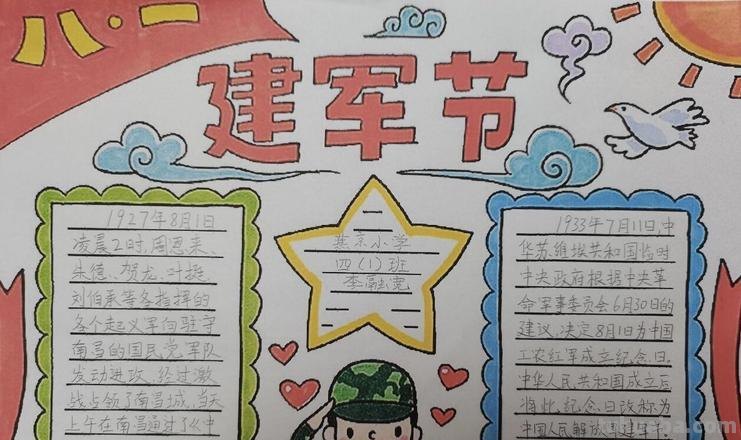 八·一
建军节
1927年8月1日
凌晨2时,周恩来、
朱德、贺龙、叶挺、
刘伯承等各指挥的
各个起义军向驻守
南昌的国民党军队
发动进攻,经过激
战占领了南昌城,当天
上午在南昌通过了《中
燕京小学
四(1)班
李
1933年7月11日,中
华苏维埃共和国临时
中央政府根据中央革
命军事委员会6月30日的
建议,决定8月1日为中国
工农红军成立纪念日。
中华人民共和国成立后
将此纪念日改称为
中国人民解放军建军节